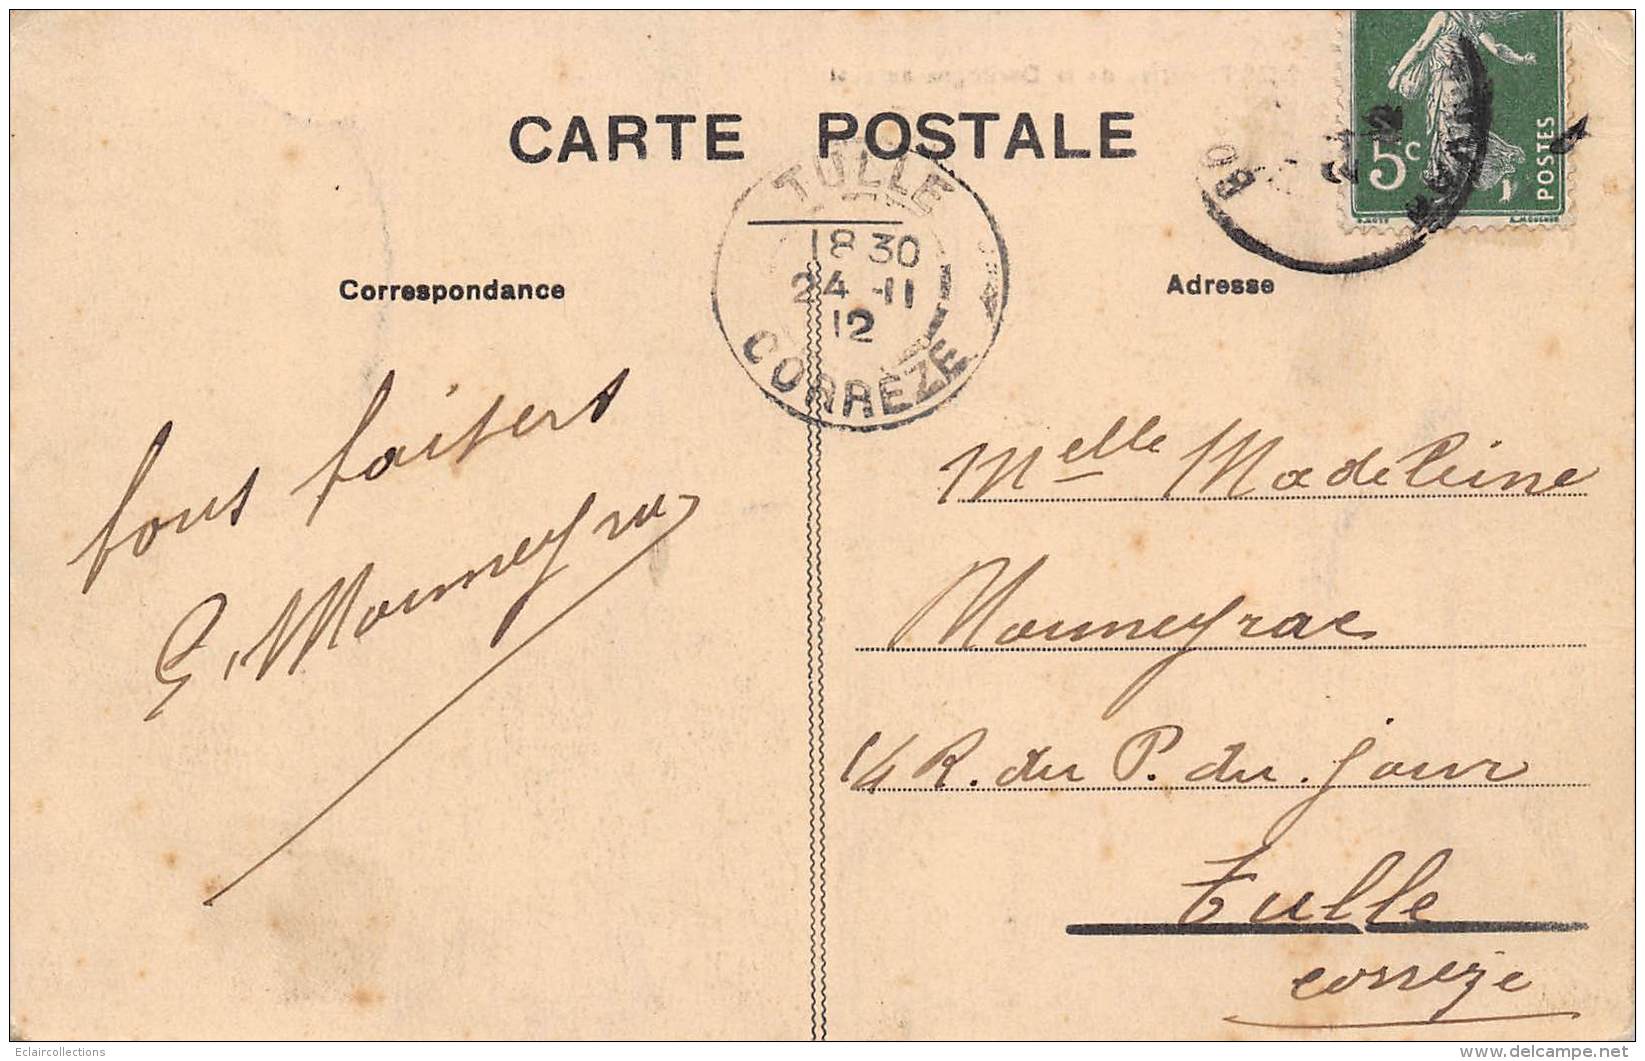 CARTE POSTALE
TULLE
18 30
24 -11
12
CORRÈZE
5c
POSTES
Correspondance
Adresse
bons baisers
G. Mouneyrac
Melle Madeleine
Mouneyrac
R. du P. du jour
Tulle
Corrèze
Eclaircollections
delcampe.net